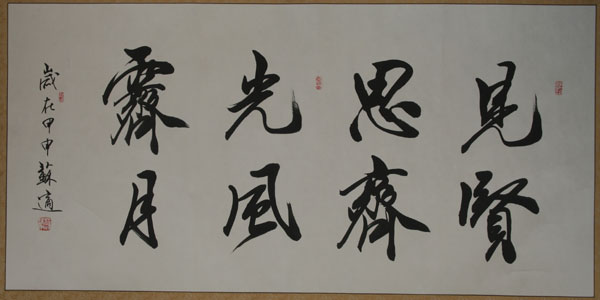 見賢
思齊
光風
霽月
歲在甲申蘇適